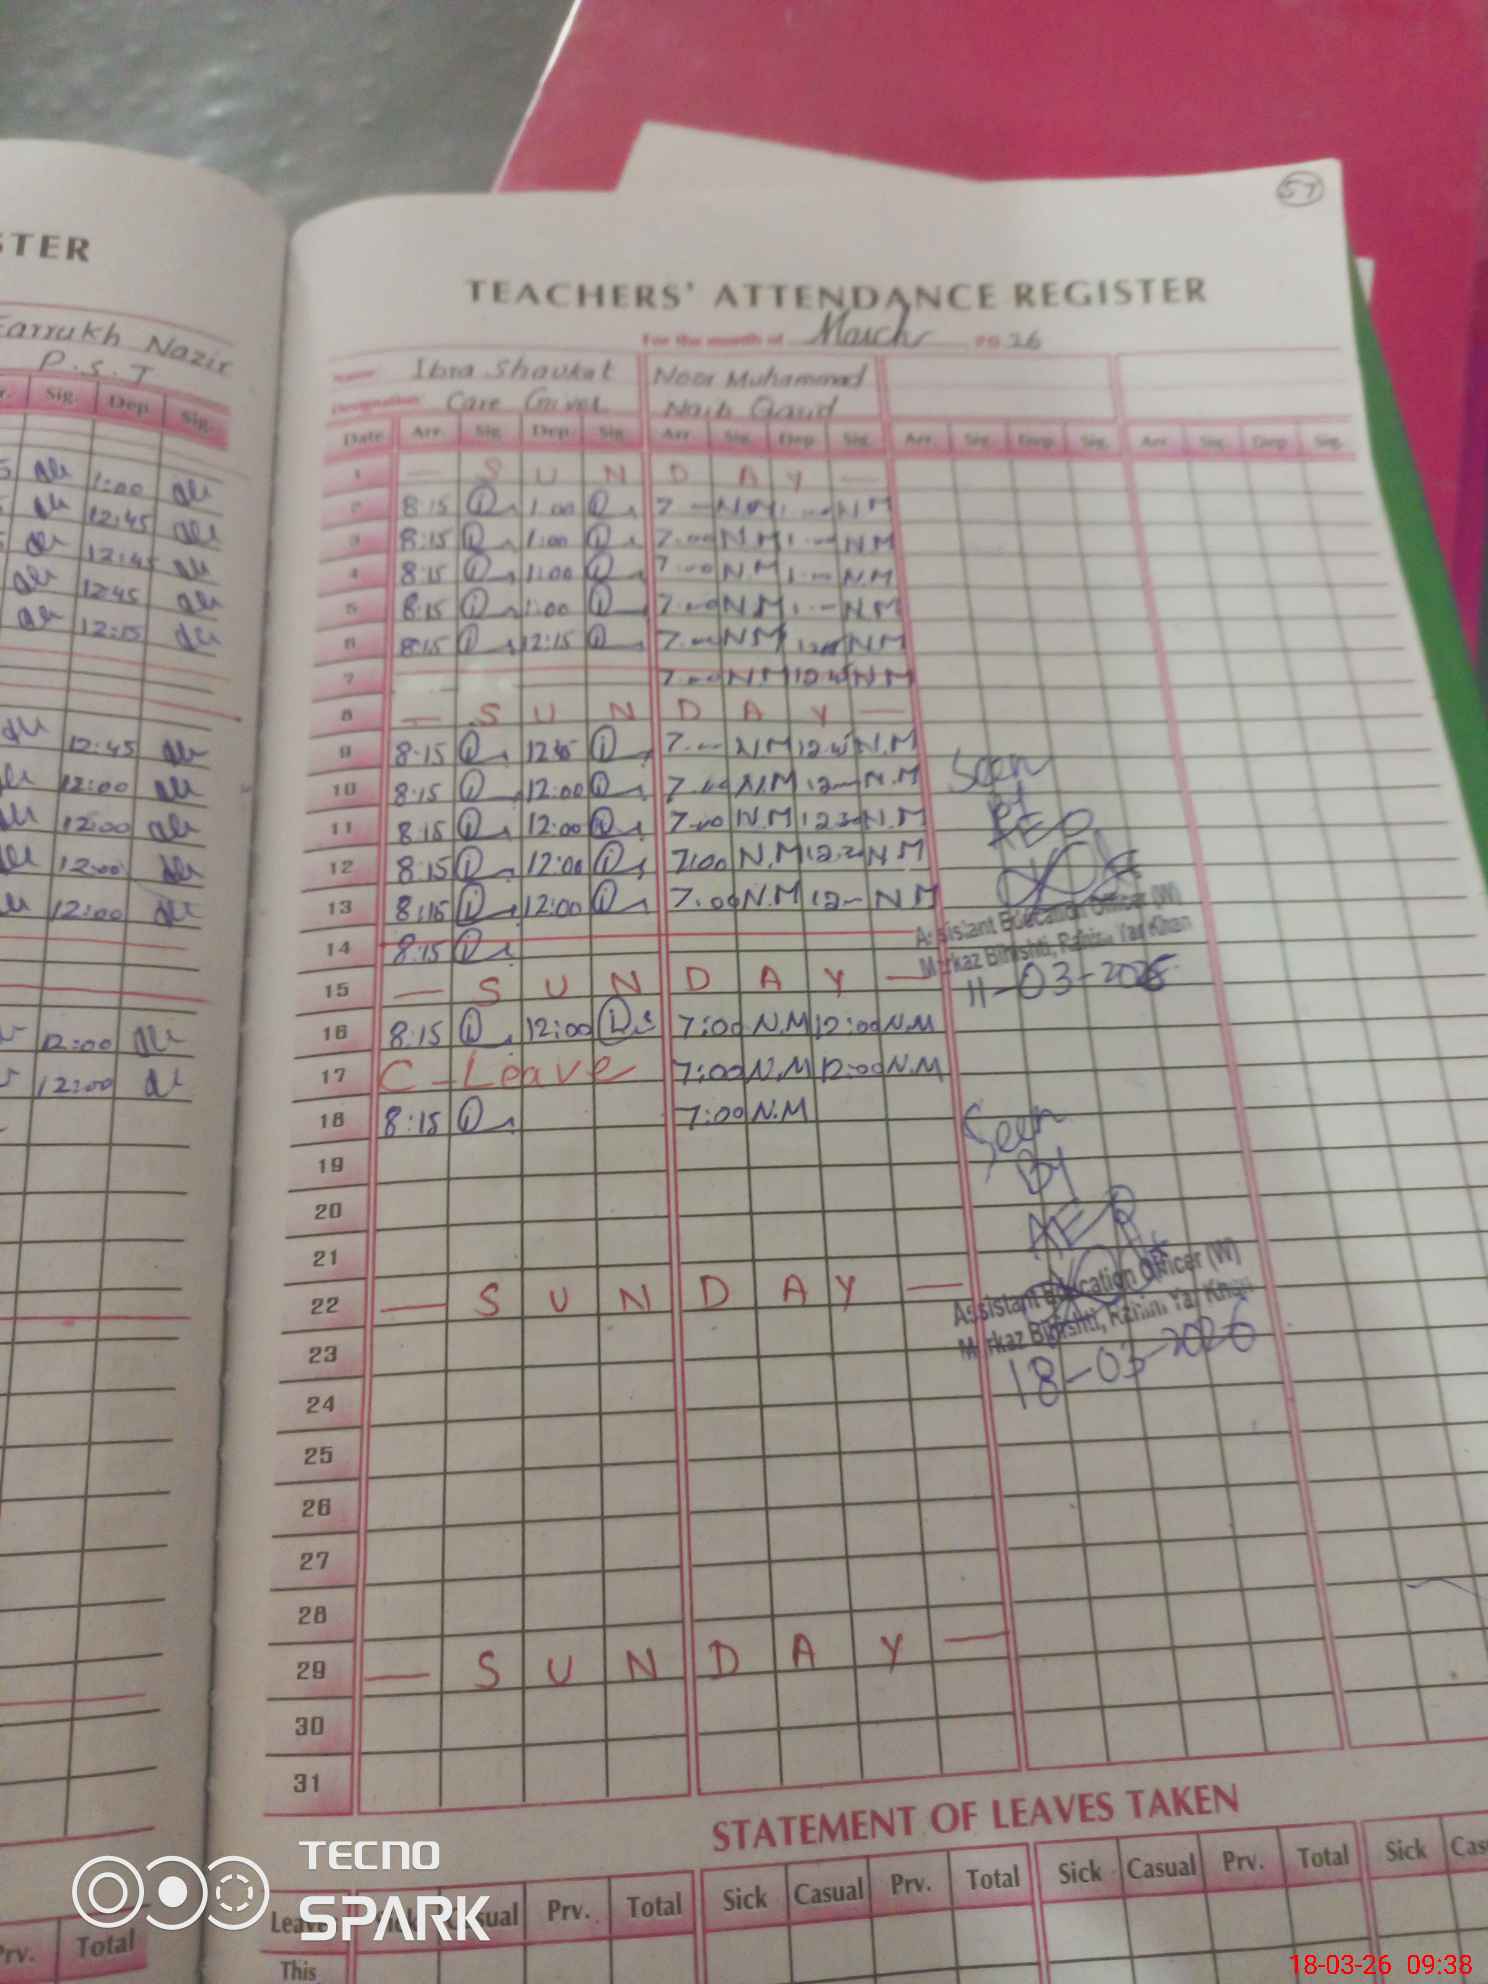 STER
Farrukh Nazir
P.S.T
Sig. Dep Sig.
1:00
12:45
12:45
12:45
12:15
12:45
12:00
12:00
12:00
12:00
12:00
12:00
Prv. Total
57
TEACHERS' ATTENDANCE REGISTER
For the month of March 2026
Name Ibra Shaukat Noor Muhammad
Designation Care Giver Naib Qasid
Date Arr. Sig. Dep. Sig. Arr. Sig. Dep. Sig. Arr. Sig. Dep. Sig. Arr. Sig. Dep. Sig.
1 — S U N D A Y —
2 8:15 1:00 7 — N.M 1 — N.M
3 8:15 1:00 7:00 N.M 1:00 N.M
4 8:15 1:00 7:00 N.M 1 — N.M
5 8:15 1:00 7:00 N.M 1 — N.M
6 8:15 12:15 7:00 N.M N.M
7 7:00 N.M N.M
8 — S U N D A Y —
9 8:15 7 — N.M N.M
10 8:15 12:00 7:00 N.M 12 — N.M
11 8:15 12:00 7:00 N.M 12:30 N.M
12 8:15 12:00 7:00 N.M N.M
13 8:15 12:00 7:00 N.M 12 — N.M
14 8:15
15 — S U N D A Y —
16 8:15 12:00 7:00 N.M 12:00 N.M
17 C - Leave 7:00 N.M 12:00 N.M
18 8:15 7:00 N.M
19
20
21
22 — S U N D A Y —
23
24
25
26
27
28
29 — S U N D A Y —
30
31
Seen
By
AEO
Assistant Education Officer (W)
Markaz Bihishti, Rahim Yar Khan
11-03-2026
Seen
By
AEO
Assistant Education Officer (W)
Markaz Bihishti, Rahim Yar Khan
18-03-2026
STATEMENT OF LEAVES TAKEN
Leave Sick Casual Prv. Total Sick Casual Prv. Total Sick Casual Prv. Total Sick Cas
This
TECNO
SPARK
18-03-26 09:38